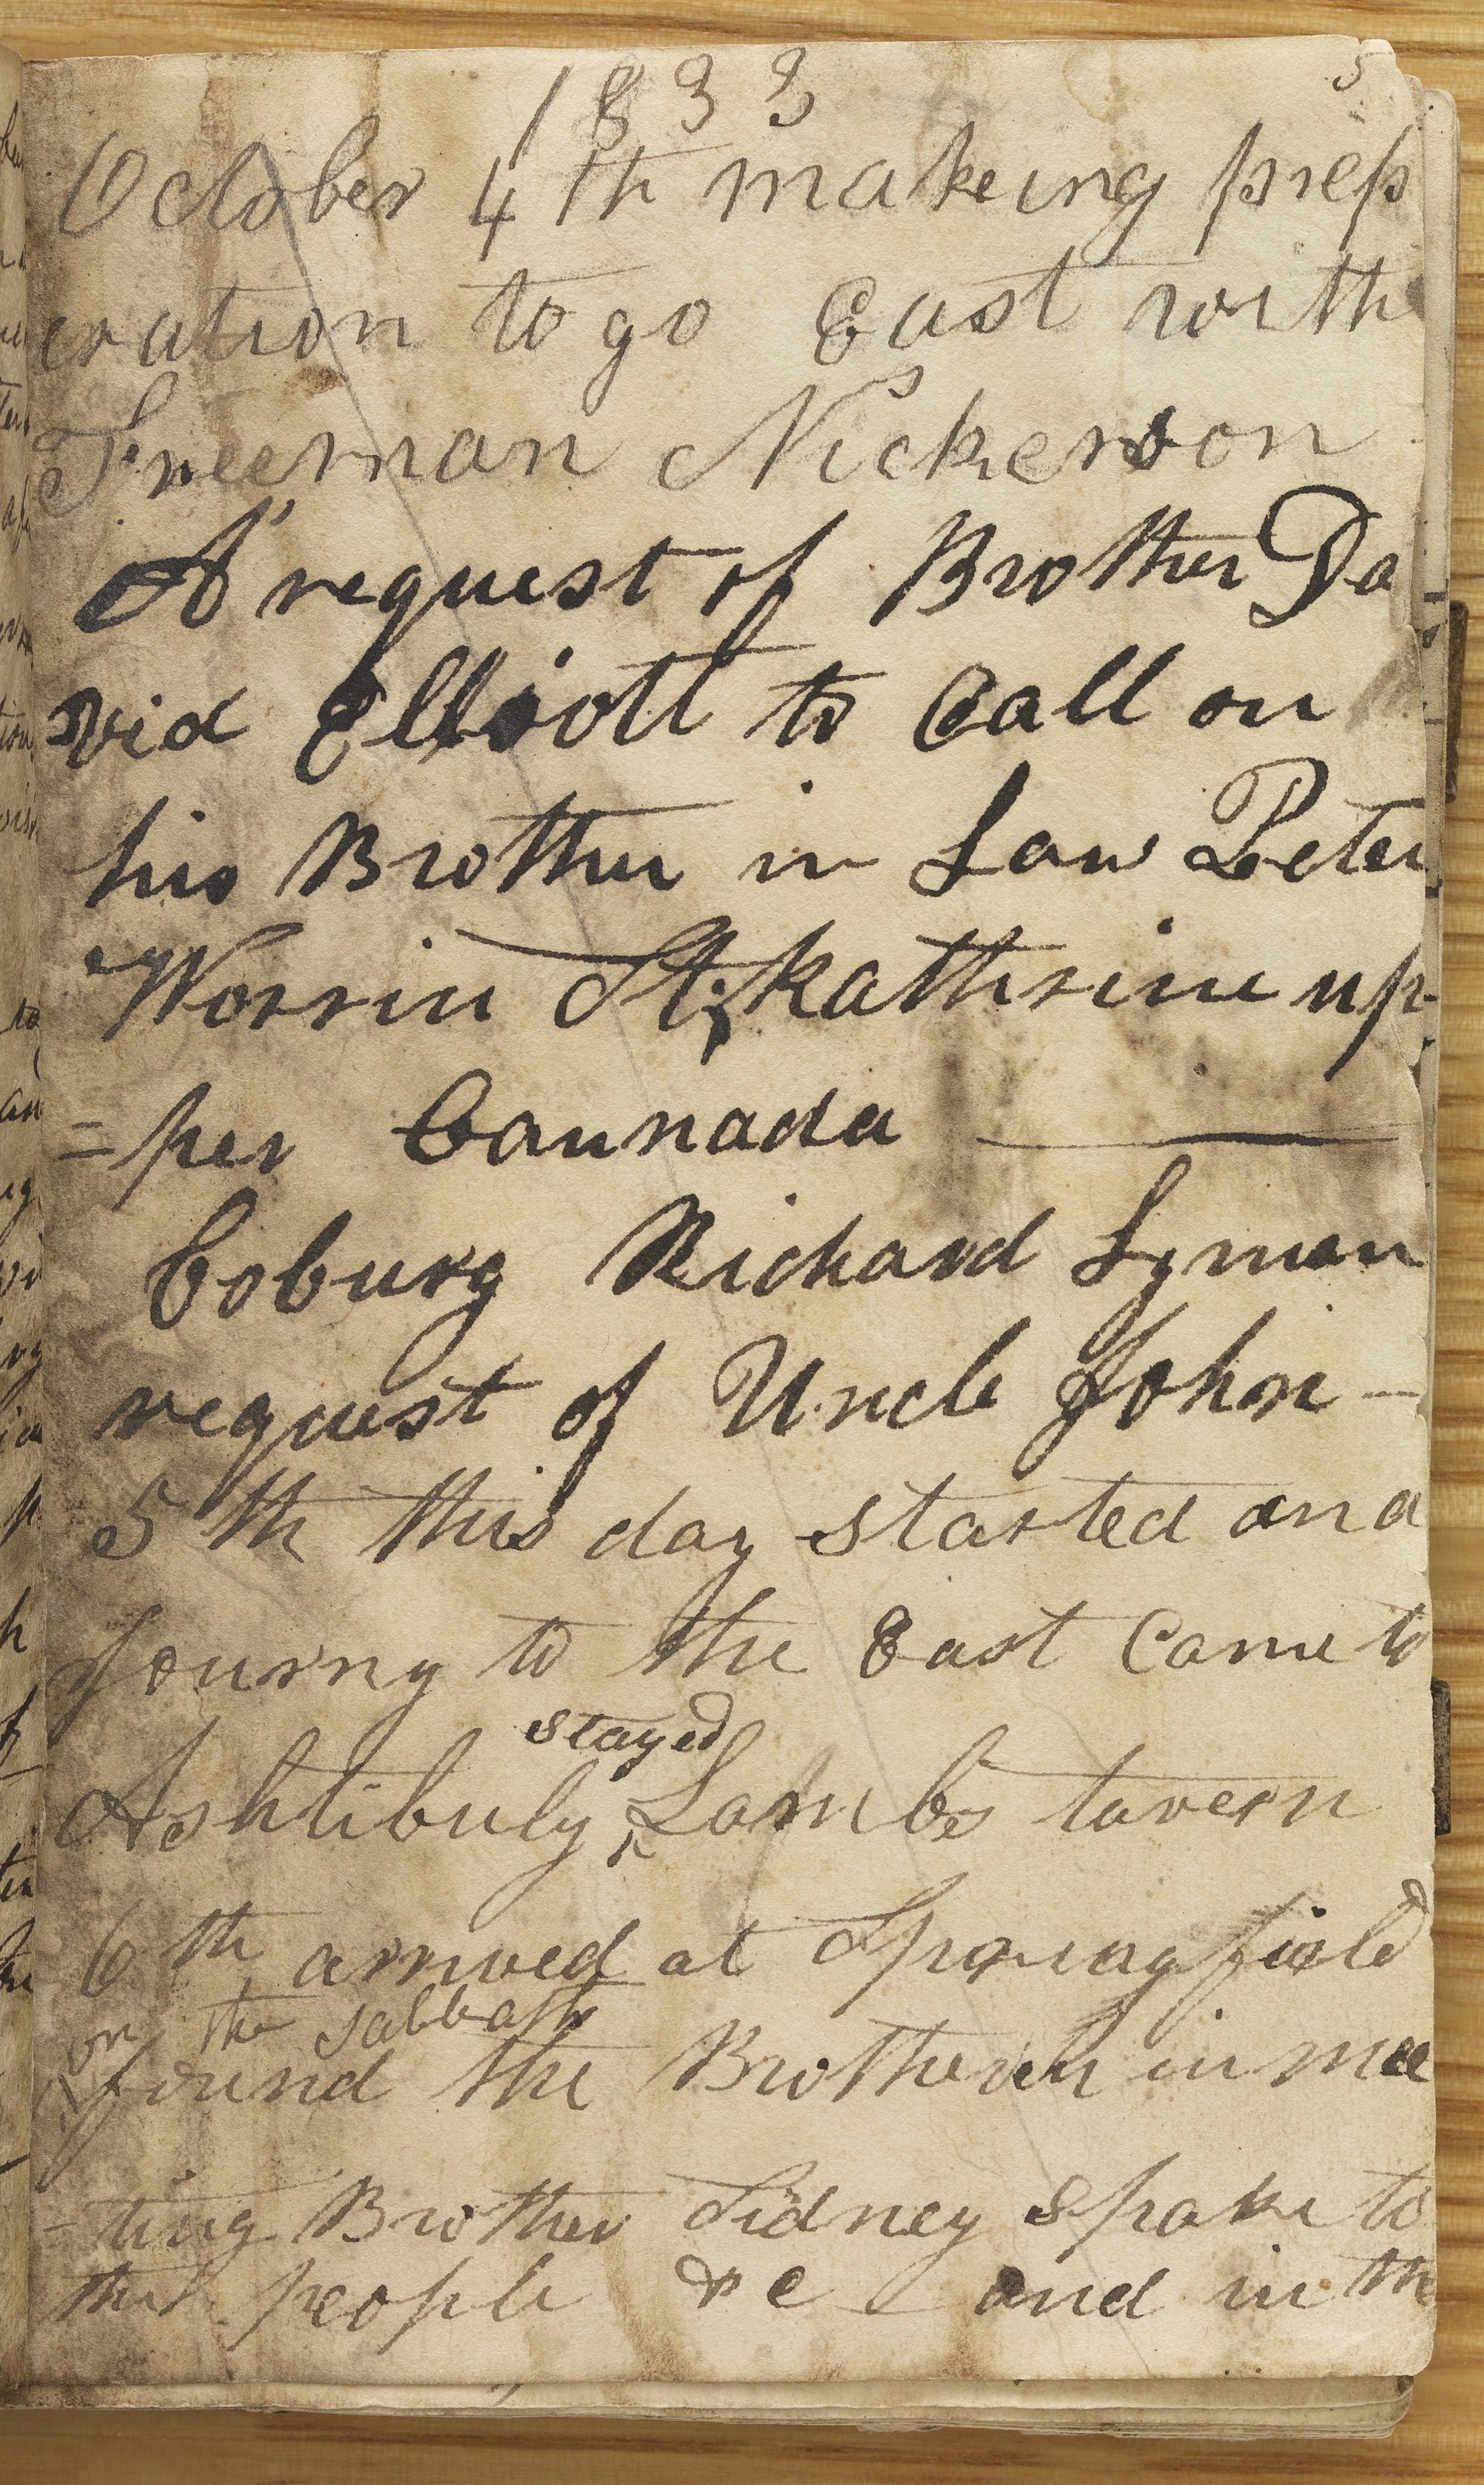 5
1833
October 4th makeing prep
eration to go East with
Freeman Nickerson
A request of Brother Da
vid Elliott to Call on
his Brother in Law Peter
Worrin St, kathrine up
=per Cannada
Coburg Richard Lyman
request of Uncle John -
5th this day started and
Journy to the East Came to
stayed
Ashtibuly ^ Lambs tavern
6th arrived at Springfield
on the sabbath
found the Brotheren in mee
-ting Brother Sidney spake to
the people &c and in the